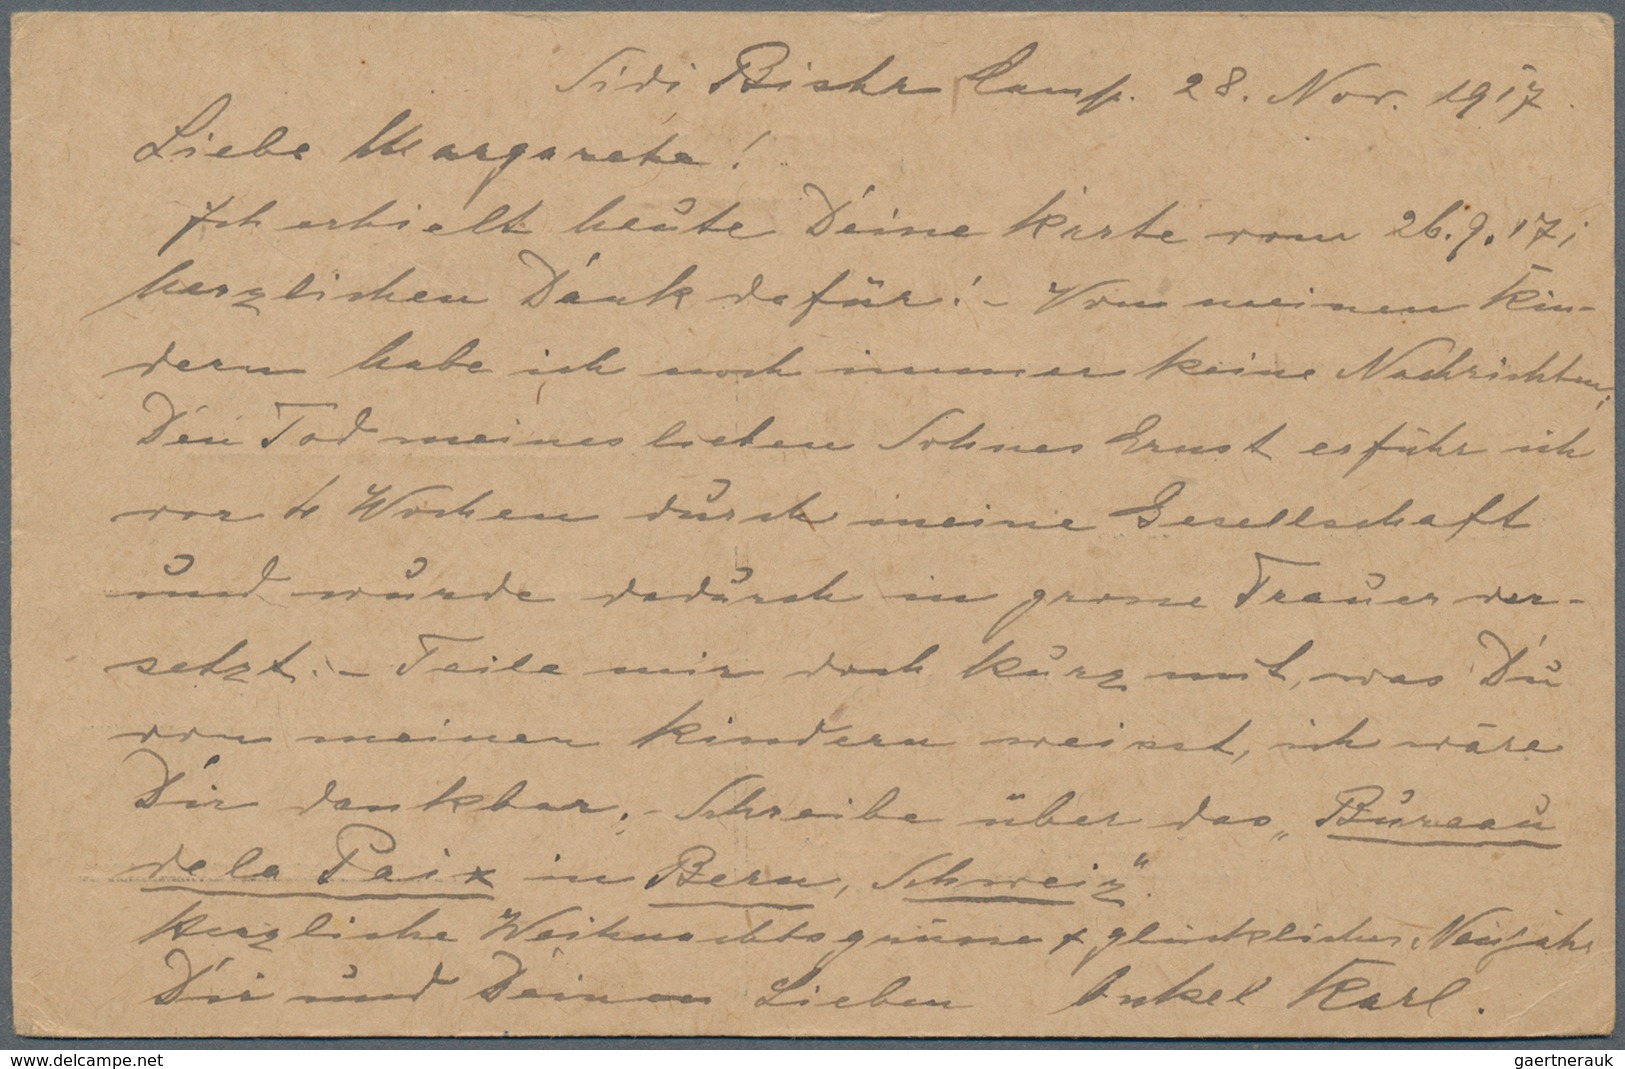 Sidi Bishr Camp. 28. Nov. 1917.
Liebe Margarete!
Ich erhielt heute Deine Karte vom 26.9.17;
herzlichen Dank dafür! – Von meinen Kin-
dern habe ich noch immer keine Nachrichten;
Den Tod meines lieben Sohnes Ernst erfuhr ich
vor 4 Wochen durch meine Gesellschaft
und wurde dadurch in grosse Trauer ver-
setzt. – Teile mir doch kurz mit, was Du
von meinen Kindern weisst, ich wäre
Dir dankbar. – Schreibe über das „Bureau
de la Paix in Bern, Schweiz".
Herzliche Weihnachtsgrüsse + glückliches Neujahr
Dir und Deinen Lieben Onkel Karl.
www.delcampe.net
gaertnerauk